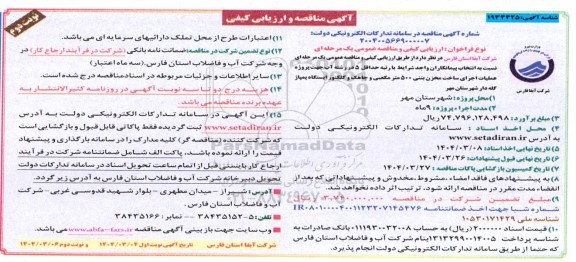 شناسه آگهی: ۱۹۳۴۴۲۵
آگهی مناقصه و ارزیابی کیفی
نوبت دوم
شماره آگهی مناقصه در سامانه تدارکات الکترونیکی دولت:
۲۰۰۴۰۰۵۶۹۰۰۰۰۰۷
نوع فراخوان: ارزیابی کیفی و مناقصه عمومی یک مرحله ای
شرکت آبفا استان فارس در نظر دارد از طریق ارزیابی کیفی و مناقصه عمومی یک مرحله ای
نسبت به انتخاب پیمانکاران واجد شرایط با رتبه حداقل ۵ در رشته آب جهت پروژه
عملیات اجرای ساخت مخزن بتنی ۵۰۰ متر مکعبی و
گله دار شهرستان مهر
۱) محل پروژه: شهرستان مهر
۲) مدت اجرای پروژه: ۹ ماه
۳) مبلغ برآورد: ۷۴,۷۹۶,۱۲۸,۴۹۸ ریال
۴) محل اخذ اسناد: سامانه تدارکات الکترونیکی دولت
به آدرس www.setadiran.ir
۵) تاریخ نهایی اخذ اسناد: ۱۴۰۴/۰۳/۰۸
۶) تاریخ نهایی قبول پیشنهادات: ۱۴۰۴/۰۳/۲۶
۷) تاریخ کمیسیون بازگشایی پاکات: ۱۴۰۴/۰۳/۲۷
۸) به پیشنهادهای فاقد امضاء، مشروط، مخدوش و پیشنهاداتی که بعد از
انقضاء مدت مقرر در مناقصه ارائه شود، ترتیب اثر داده نخواهد شد.
۹) مبلغ تضمین شرکت در مناقصه: ریال
شماره شبا جهت اخذ ضمانتنامه
شناسه ملی ۱۰۵۳۰۱۷۱۴۲۹
۱۰) قیمت اسناد ۲۰۰۰۰۰۰ (ریال) به حساب ۰۱۱۱۹۳۰۰۳۲۰۰۸ بانک صادرات به
شناسه پرداخت بنام شرکت آب و فاضلاب استان فارس
که حتما از طریق سامانه تدارکات الکترونیکی دولت انجام پذیرد.
۱۱) اعتبارات طرح از محل تملک دارائیهای سرمایه ای می باشد.
۱۲) نوع تضمین شرکت در مناقصه: ضمانت نامه بانکی (شرکت در فرآیند ارجاع کار) در
وجه شرکت آب و فاضلاب استان فارس. (سه ماه اعتبار)
۱۳) سایر اطلاعات و جزئیات مربوطه در اسناد مناقصه درج شده است.
۱۴) هزینه درج دو تا سه نوبت آگهی در روزنامه کثیرالانتشار به
عهده برنده مناقصه می باشد.
۱۵) این آگهی در سامانه تدارکات الکترونیکی دولت به آدرس
www.setadiran.ir ثبت گردیده فقط پاکاتی قابل قبول و بازگشایی است
که شرکت کننده (مناقصه گر) کلیه مدارک را در سامانه بارگذاری و پیشنهاد
قیمت را ارائه نموده باشد، پاکت الف شامل ضمانتنامه شرکت در فرآیند
ارجاع کار بایستی قبل از اتمام ساعت تحویل اسناد در سامانه تدارکات دولت
تحویل دبیرخانه شرکت آب و فاضلاب استان فارس به آدرس زیر گردد.
آدرس: شیراز - میدان مطهری - بلوار شهید قدوسی غربی - شرکت
آب و فاضلاب استان فارس.
تلفن: ۵-۳۸۴۳۵۱۵۲ - نمابر: ۳۸۴۳۵۱۶۶
وب سایت جهت بازبینی آگهی مناقصه www.abfa-fars.ir می باشد.
شرکت آبفا استان فارس
تاریخ آگهی نوبت اول ۱۴۰۴/۰۳/۰۴ و نوبت دوم ۱۴۰۴/۰۳/۰۶